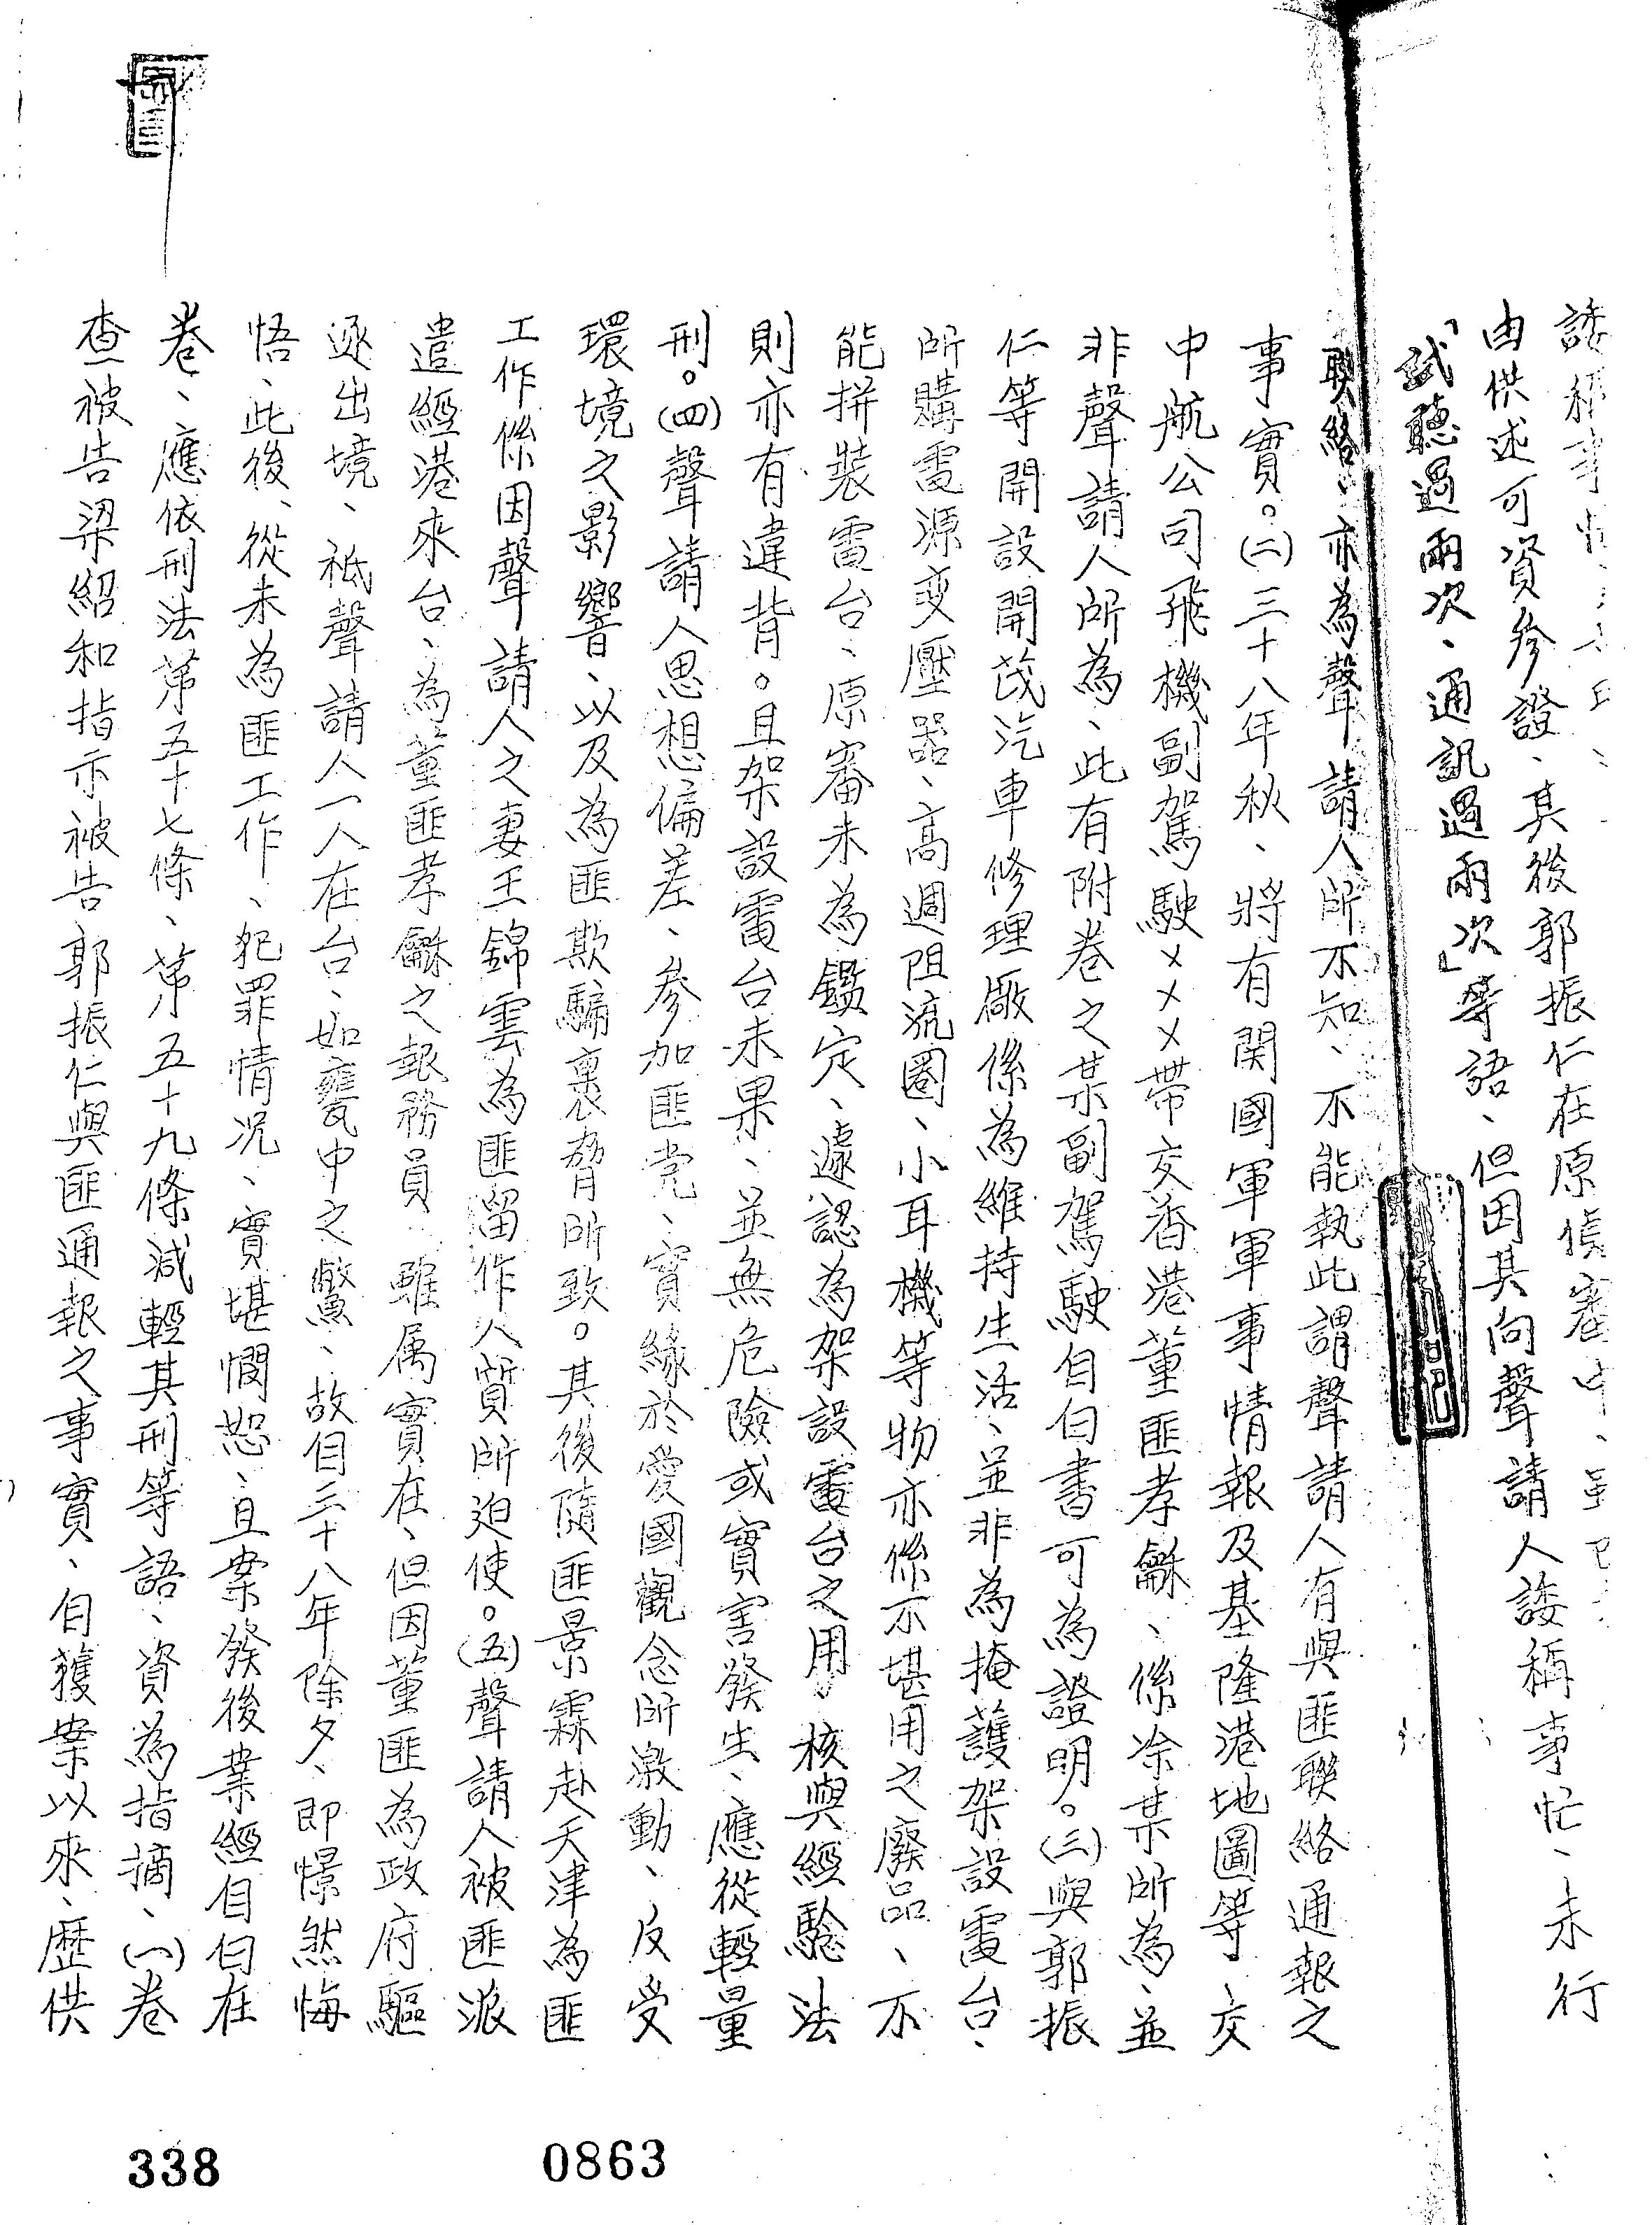 諉稱事忙
由供述可資參證、其後郭振仁在原偵審中、
「試聽過兩次、通訊過兩次」等語、但因其向聲請人諉稱事忙、未行
聯絡、亦為聲請人所不知、不能執此謂聲請人有與匪聯絡通報之
事實。(二)三十八年秋、將有関國軍軍事情報及基隆港地圖等、交
中航公司飛機副駕駛ㄨㄨㄨ帶交香港董匪孝龢、係凃某所為、並
非聲請人所為、此有附卷之某副駕駛自白書可為證明。(三)與郭振
仁等開設開茂汽車修理廠係為維持生活、並非為掩護架設電台、
所購電源变壓器、高週阻流圈、小耳機等物亦係不堪用之廢品、不
能拼裝電台、原審未為鑑定、遽認為架設電台之用、核與經驗法
則亦有違背。且架設電台未果、並無危險或實害發生、應從輕量
刑。(四)聲請人思想偏差、參加匪党、實緣於愛國觀念所激動、反受
環境之影響、以及為匪欺騙裹脅所致。其後隨匪景霖赴天津為匪
工作係因聲請人之妻王錦雲為匪留作人質所迫使。(五)聲請人被匪派
遣經港來台、為董匪孝龢之報務員、雖属實在、但因董匪為政府驅
逐出境、祗聲請人一人在台、如甕中之鱉、故自三十八年除夕、即憬然悔
悟、此後、從未為匪工作、犯罪情况、實堪憫恕、且案發後業經自白在
卷、應依刑法第五十七條、第五十九條減輕其刑等語、資為指摘、(一)卷
查被告梁紹和指示被告郭振仁與匪通報之事實、自獲案以來、歷供
338
0863